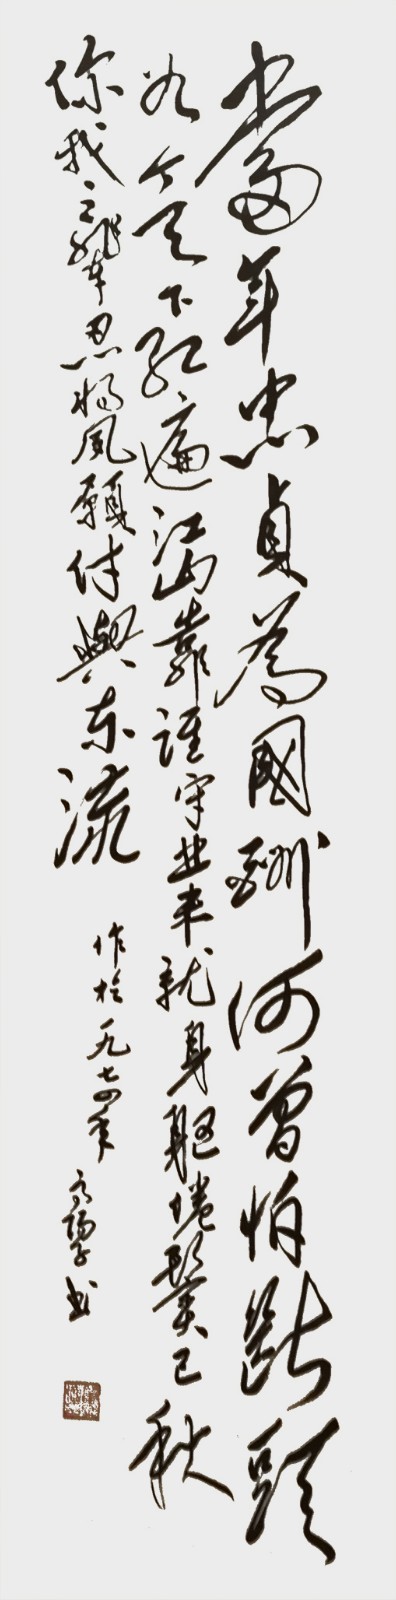 當年忠貞為國酬何曾怕断頭
如今天下红遍江山靠誰守业未就身躯倦鬓已秋
你我之辈忍将夙願付與东流
作於一九七四年
书